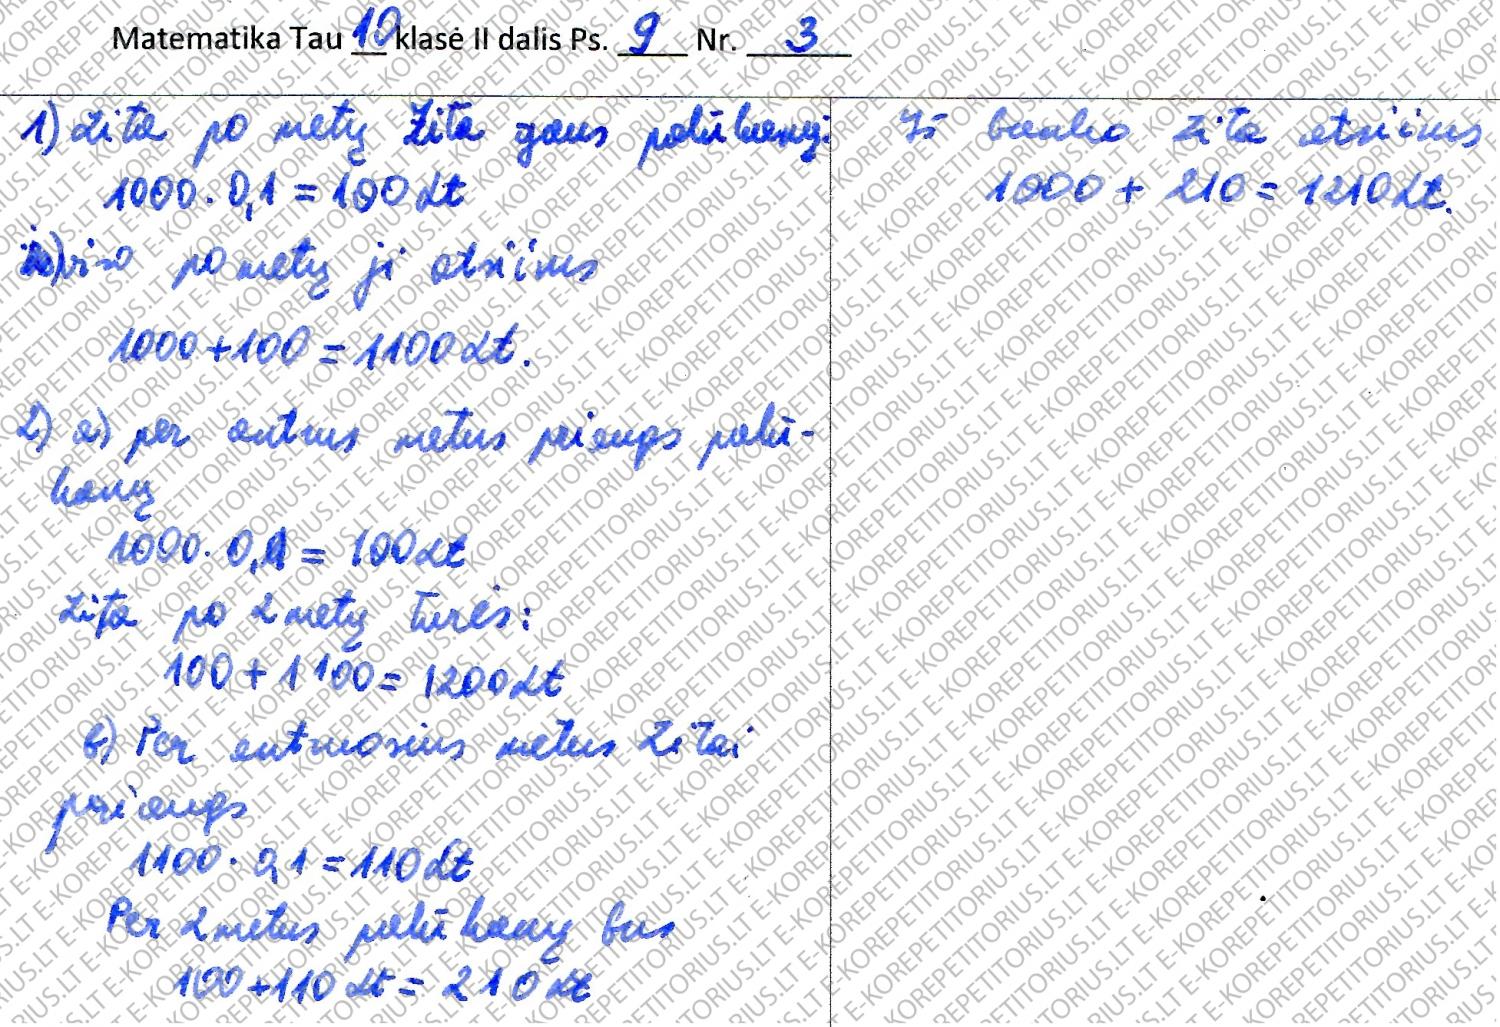 Matematika Tau 10 klasė II dalis Ps. 9 Nr. 3
1) Zita po metų Zita gaus palūkanų:
1000 · 0,1 = 100 Lt
viso po metų ji atsiims
1000 + 100 = 1100 Lt.
2) a) per antrus metus priaugs palū-
kanų
1000 · 0,1 = 100 Lt
Zita po 2 metų turės:
100 + 1100 = 1200 Lt
b) Per antruosius metus Zitai
priaugs
1100 · 0,1 = 110 Lt
Per 2 metus palūkanų bus
100 + 110 Lt = 210 Lt
Iš banko Zita atsiims
1000 + 210 = 1210 Lt.
E-KOREPETITORIUS.LT